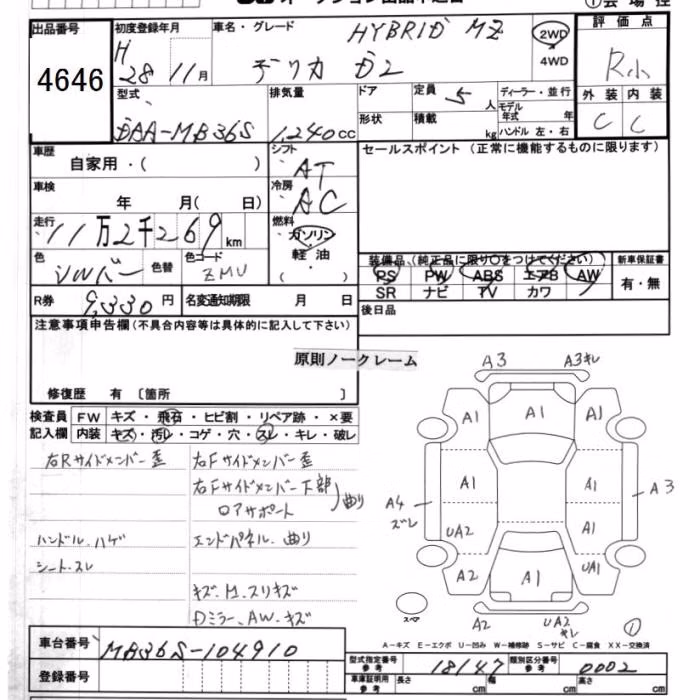 出品番号 初度登録年月 車名・グレード HYBRID MZ 2WD 評価点
4646 H 28 11月 デリカ D2 4WD R小
型式 排気量 ドア 定員 5人 ディーラー・並行 外装 内装
DAA-MB36S 1,240cc 形状 積載 kg モデル年式 年 C C
ハンドル 左・右
車歴 シフト セールスポイント(正常に機能するものに限ります)
自家用・( ) AT
車検 冷房
年 月( 日) AC
走行 燃料
11万2千269km ガソリン
色 色替 色コード 軽油 装備品(純正品に限り○をつけてください) 新車保証書
シルバー ZMU ・( ) PS PW ABS エアB AW 有・無
SR ナビ TV カワ
R券 9,330円 名変通知期限 月 日 後日品
注意事項申告欄(不具合内容等は具体的に記入して下さい)
原則ノークレーム
修復歴 有 〔箇所 〕
検査員 FW キズ・飛石・ヒビ割・リペア跡・×要
記入欄 内装 キズ・汚レ・コゲ・穴・スレ・キレ・破レ
右Rサイドメンバー歪 右Fサイドメンバー歪
右Fサイドメンバー下部 曲り
ロアサポート
ハンドル・ハゲ エンドパネル・曲り
シート・スレ
キズ・M・スリキズ
Dミラー、AW・キズ
A3 A3キレ
A1 A1 A1
A1 A1
A4 スレ A3
UA2 A1
A2 A1 UA1
スペア A2 UA2 キレ ①
A-キズ E-エクボ U-凹み W-補修跡 S-サビ C-腐食 XX-交換済
車台番号 MB36S-104910
型式指定番号 参考 18147 類別区分番号 参考 0002
登録番号 車庫証明用 参考 長さ cm 幅 cm 高さ cm